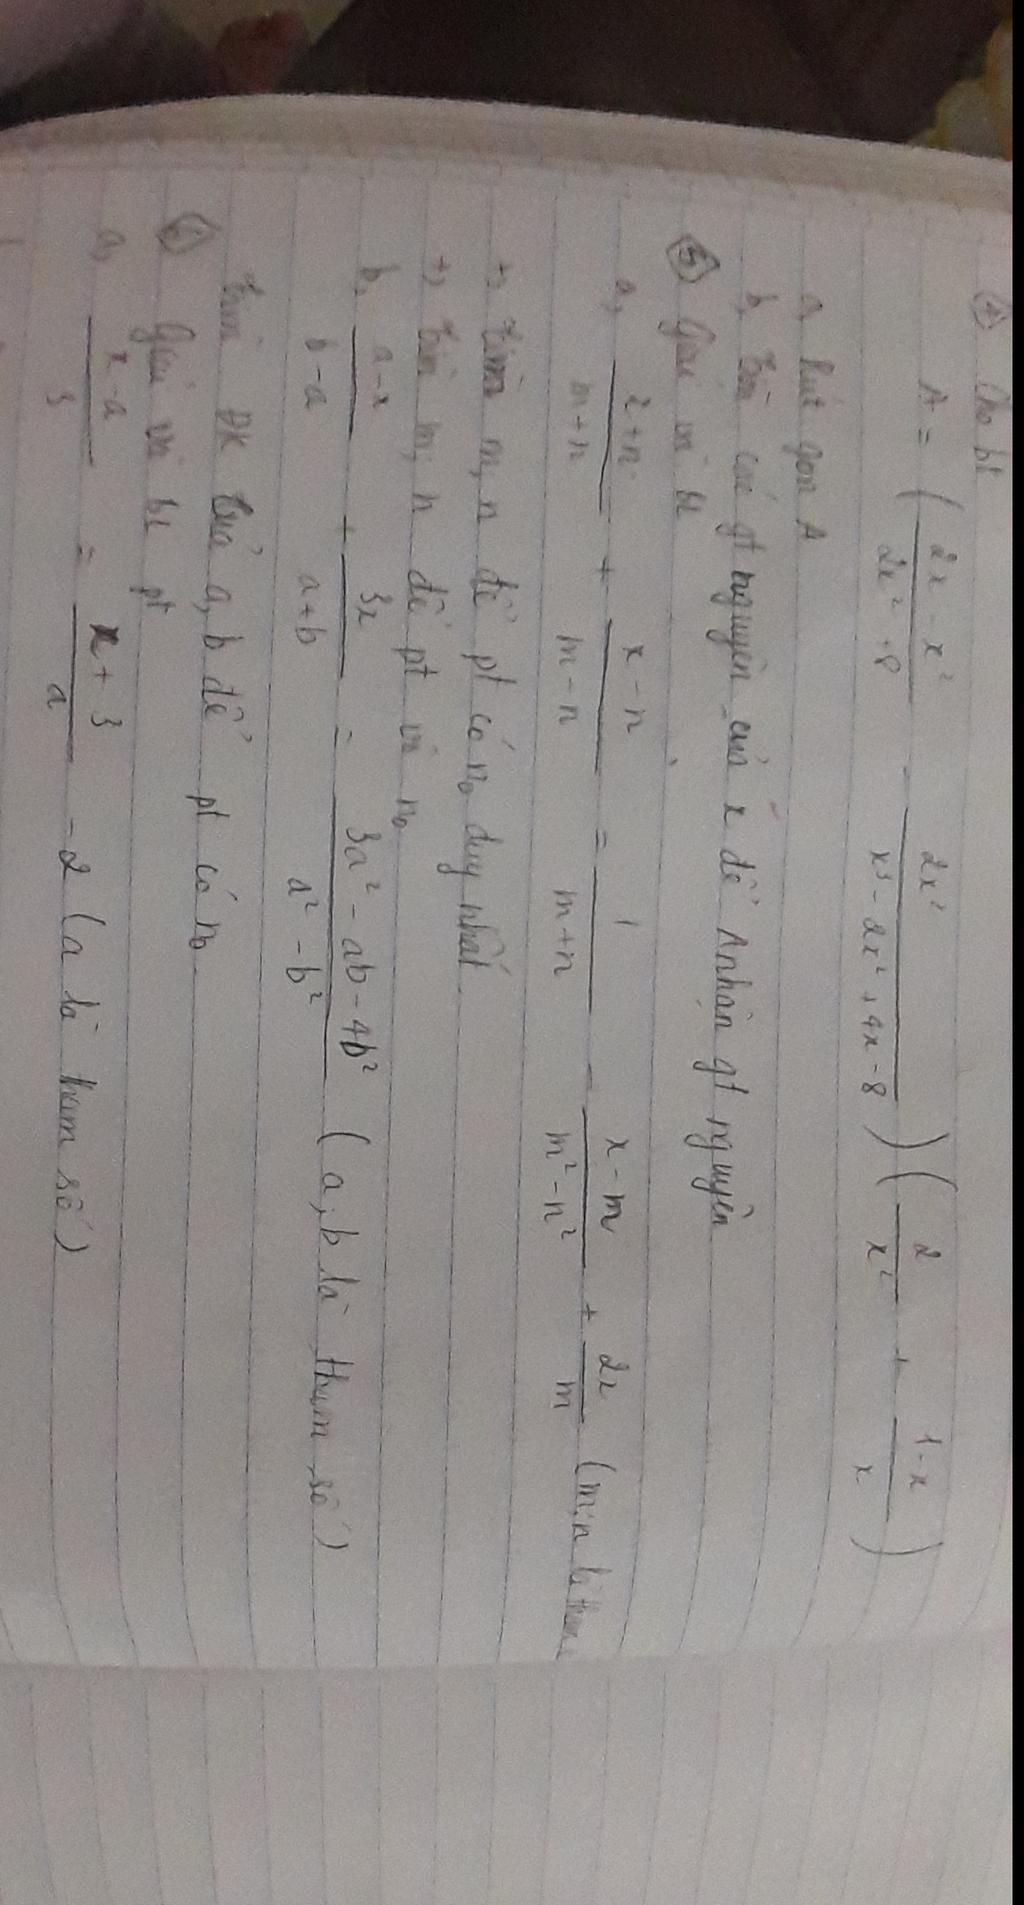 ④ Cho bt
A = ( (2x - x²)/(2x² + 8) - 2x²/(x³ - 2x² + 4x - 8) ) ( 2/x² + (1-x)/x )
a, Rút gọn A
b, Tìm các gt nguyên của x để A nhận gt nguyên
⑤ Giải và bl
a, (2+n)/(m+n) + (x-n)/(m-n) = 1/(m+n) - (x-m)/(m²-n²) + 2x/m (m;n là tham
+, tìm m, n để pt có n₀ duy nhất
+, tìm m; n để pt vô n₀
b, (a-x)/(b-a) + 3x/(a+b) = (3a² - ab - 4b²)/(a² - b²) (a;b là tham số)
Tìm ĐK của a, b để pt có n₀
⑥ Giải và bl pt
a, (x-a)/3 = (x+3)/a - 2 (a là tham số)